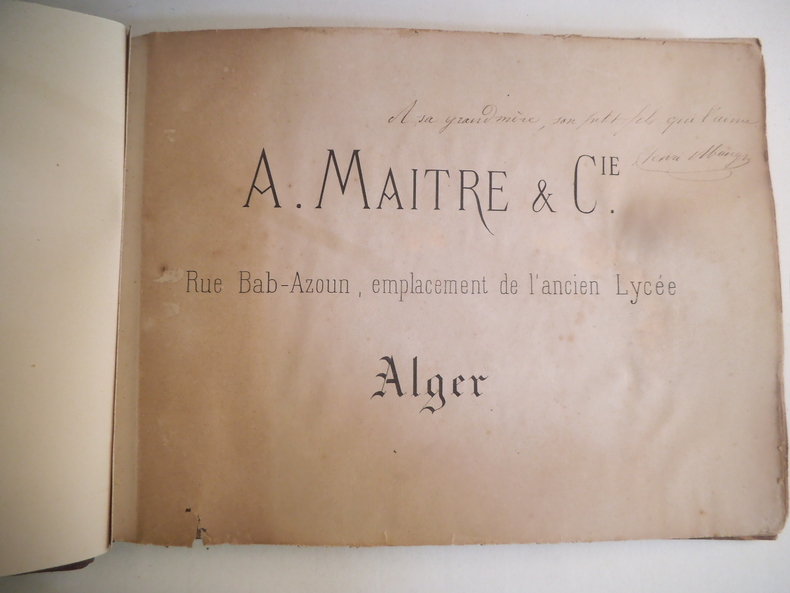 A sa grandmère, son petit fils qui l'aime
Henri
A. MAITRE & CIE.
Rue Bab-Azoun, emplacement de l'ancien Lycée
Alger